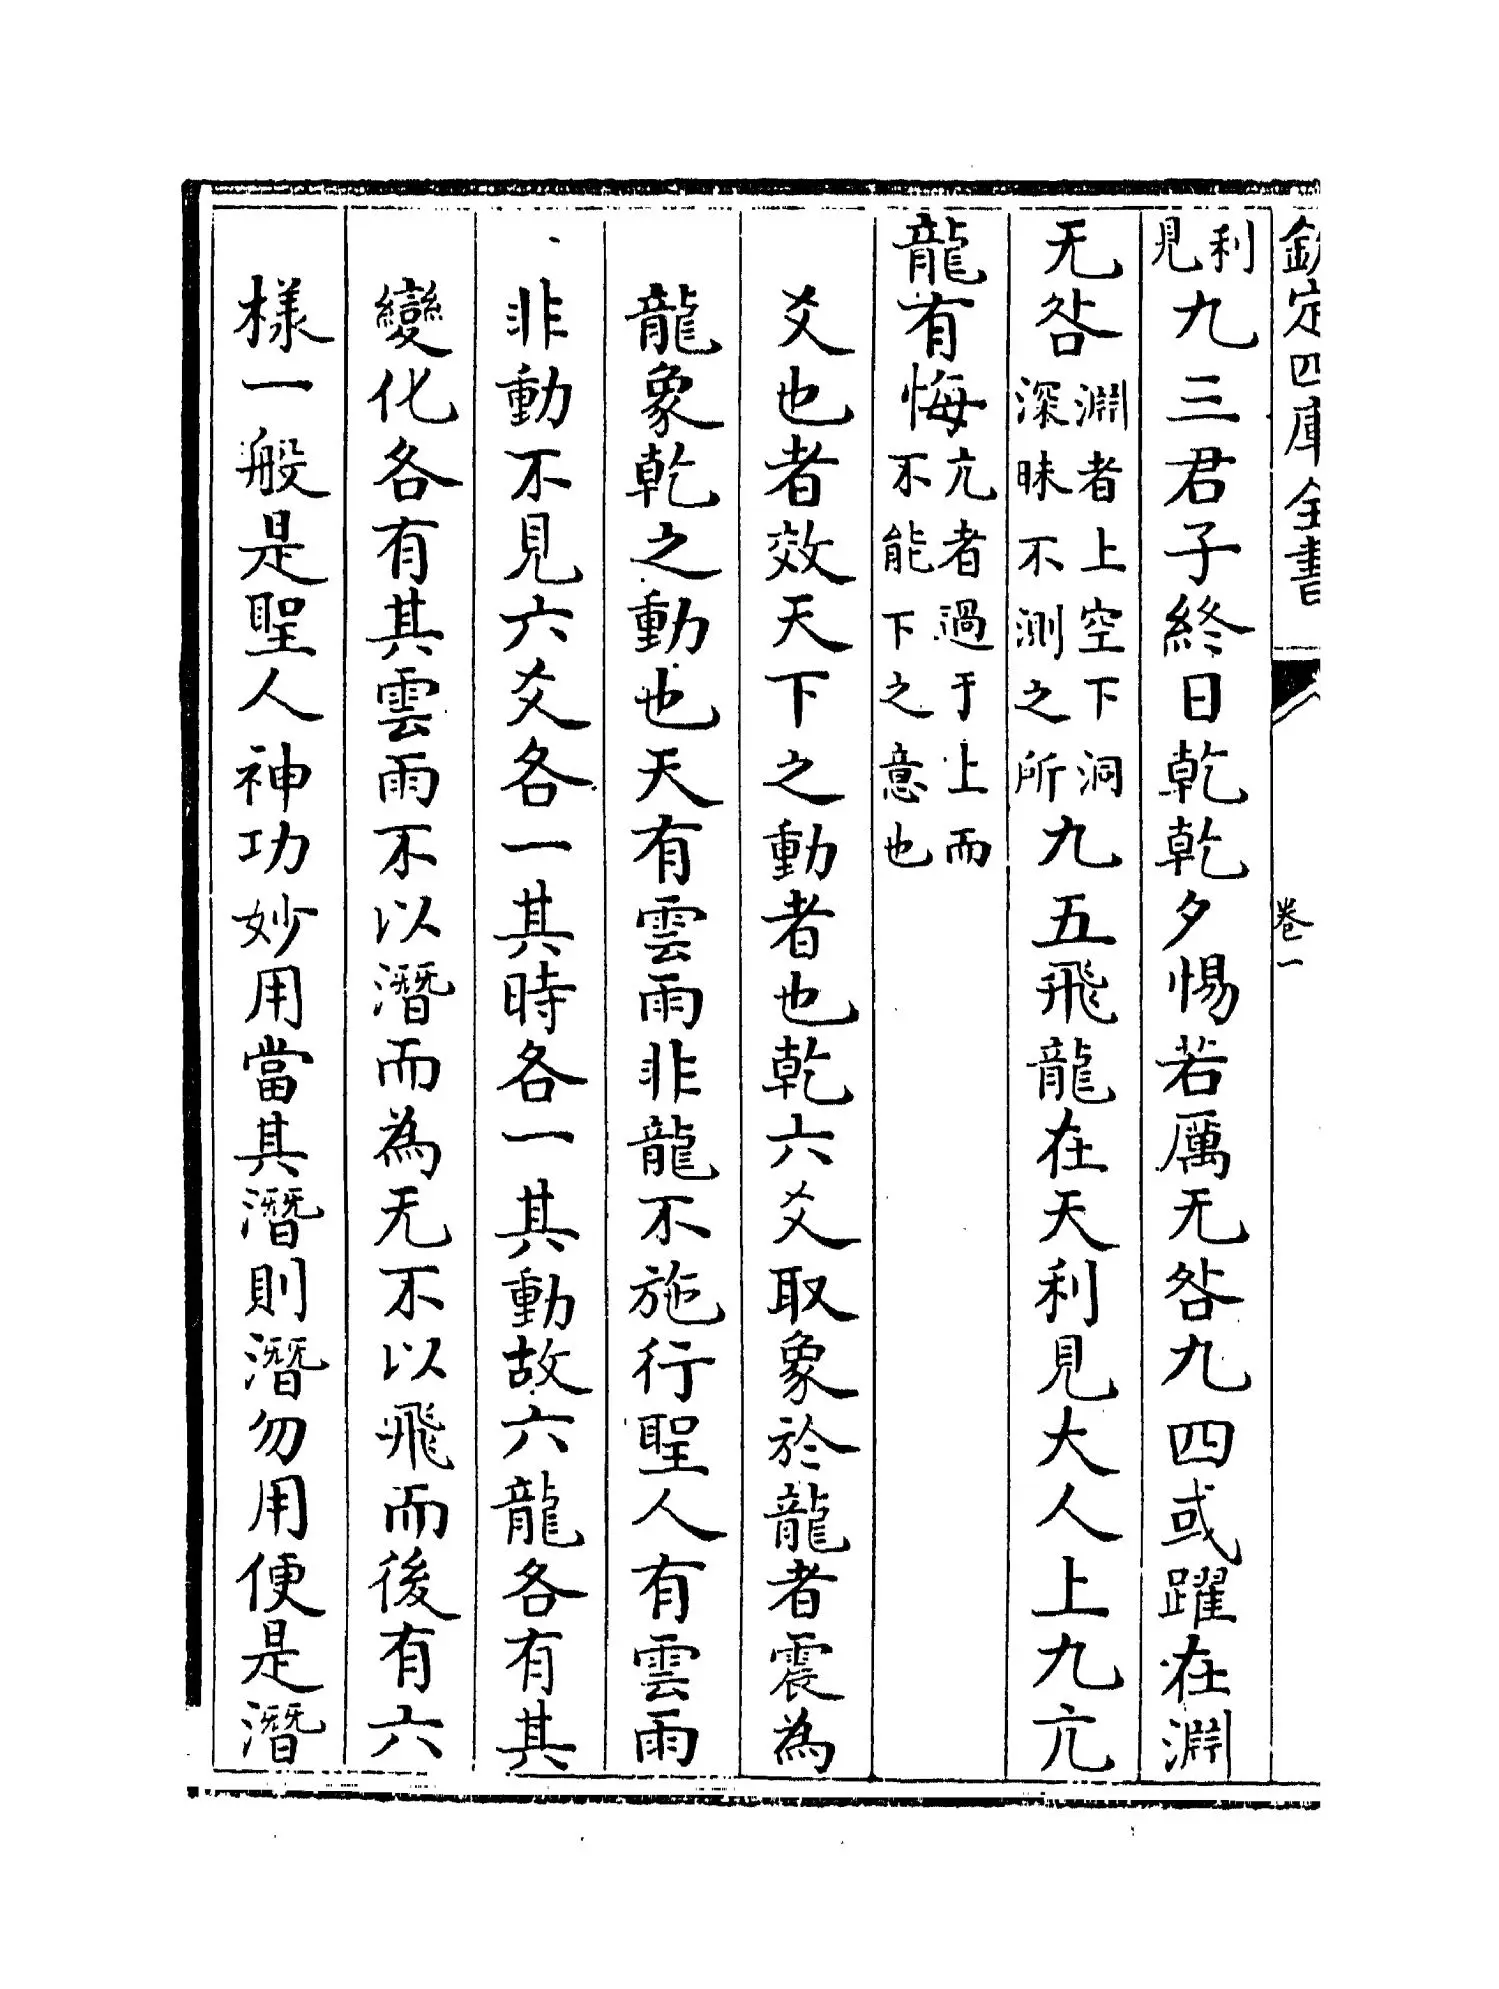 欽定四庫全書 卷一
利見九三君子終日乾乾夕惕若厲无咎九四或躍在淵
无咎淵者上空下洞深昧不測之所九五飛龍在天利見大人上九亢
龍有悔亢者過于上而不能下之意也
爻也者效天下之動者也乾六爻取象於龍者震為
龍象乾之動也天有雲雨非龍不施行聖人有雲雨
非動不見六爻各一其時各一其動故六龍各有其
變化各有其雲雨不以潛而為无不以飛而後有六
樣一般是聖人神功妙用當其潛則潛勿用便是潛